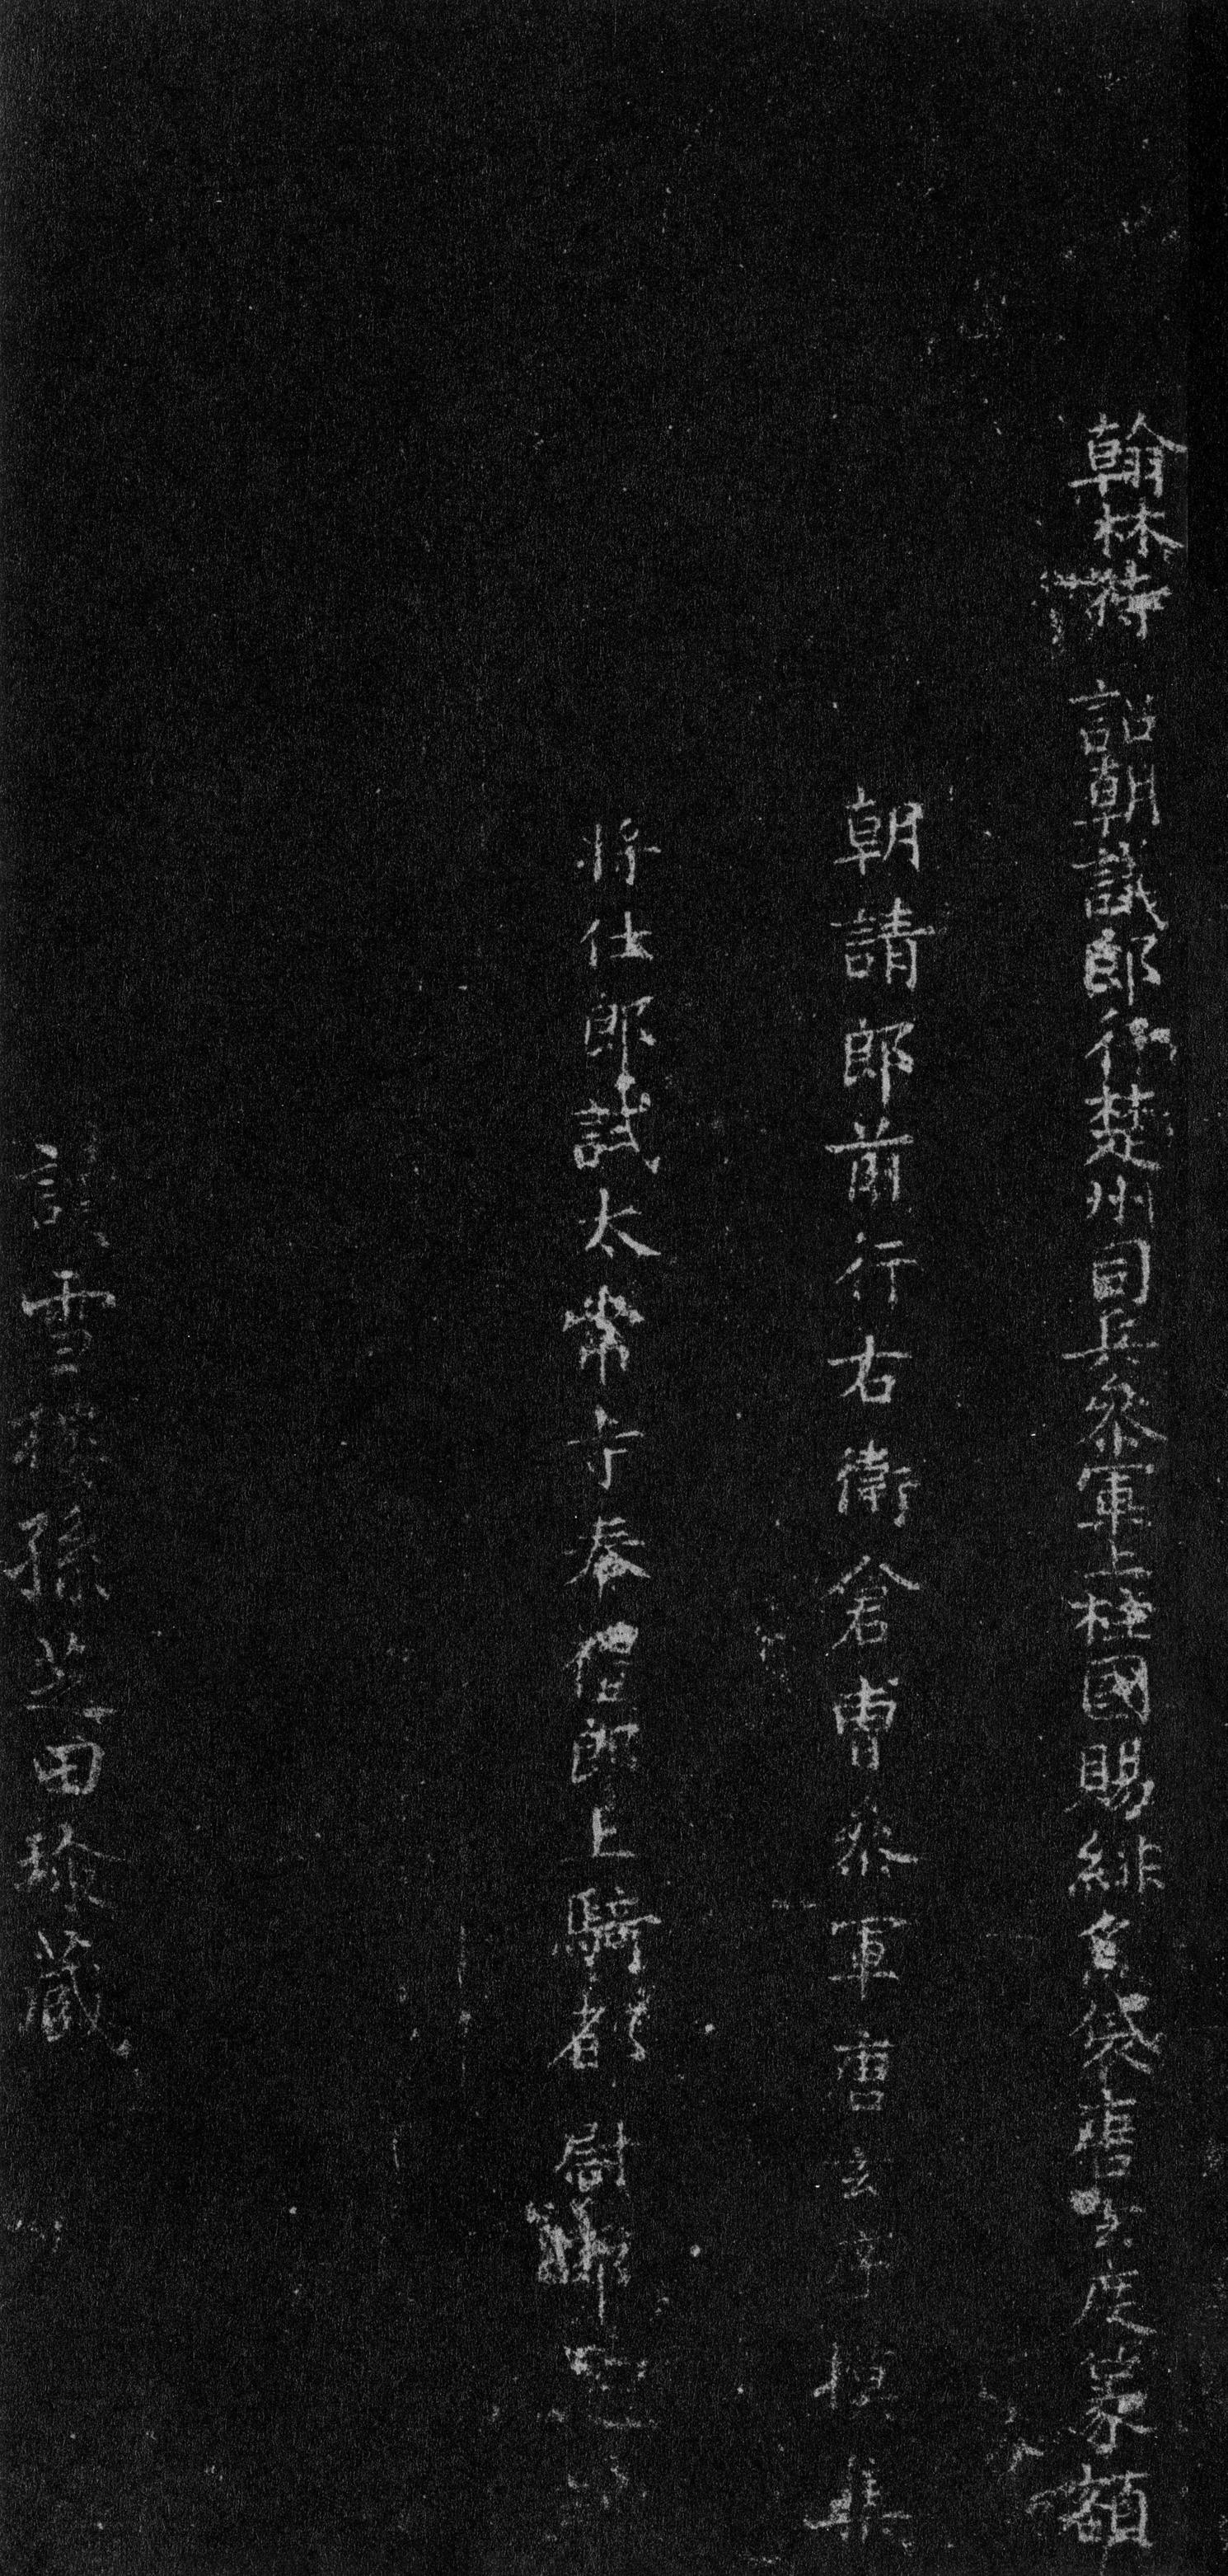 翰林待詔朝議郎行楚州司兵叅軍上柱國賜緋魚袋唐玄度篆額
朝請郎前行右衛倉曹叅軍唐玄序模集
將仕郎試太常寺奉禮郎上騎都尉
雪孫芝田珍藏